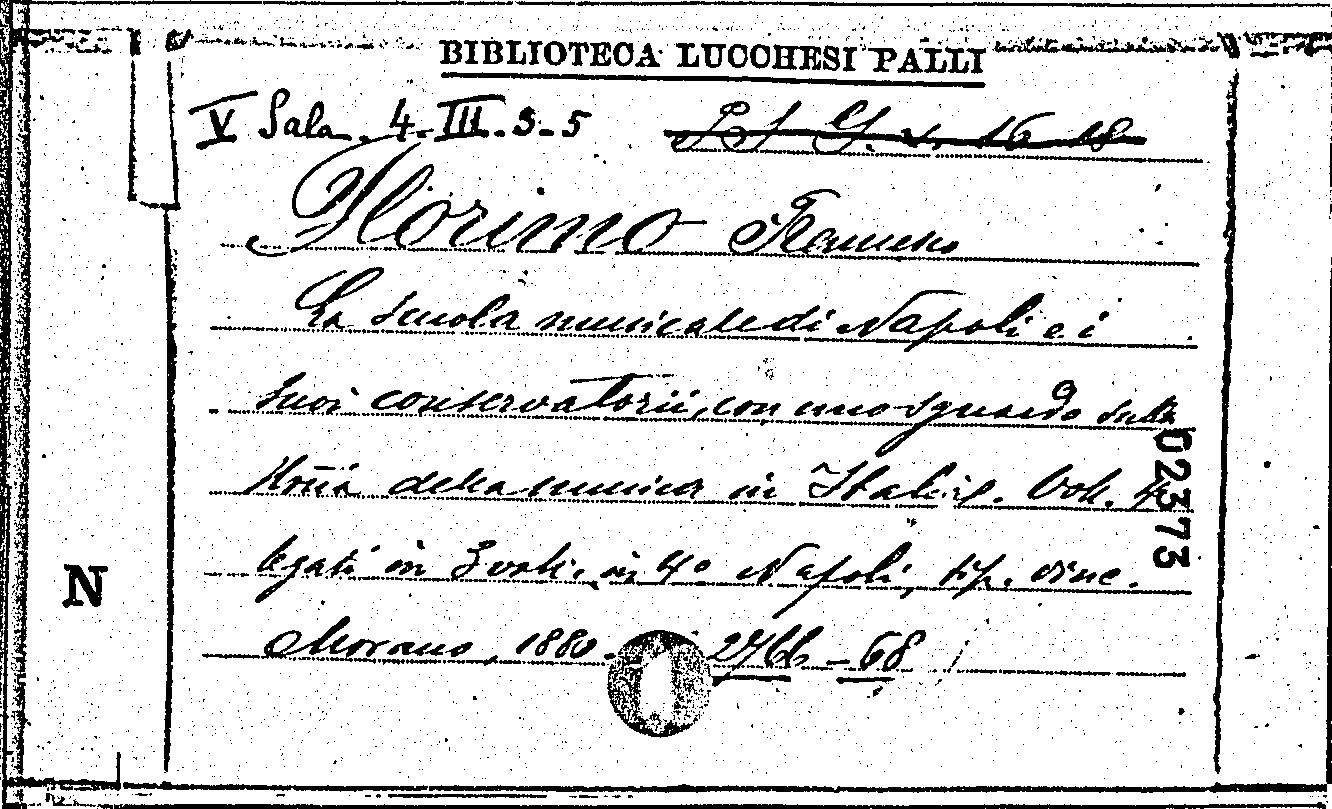 BIBLIOTECA LUCCHESI PALLI
V Sala. 4. III. 3-5
Florimo Francesco
La scuola musicale di Napoli e i
suoi conservatorii, con uno sguardo sulla
storia della musica in Italia. Voll. 4
legati in 3 voll. in 4º Napoli, tip. vinc.
Morano, 1880. 2766-68
02373
N